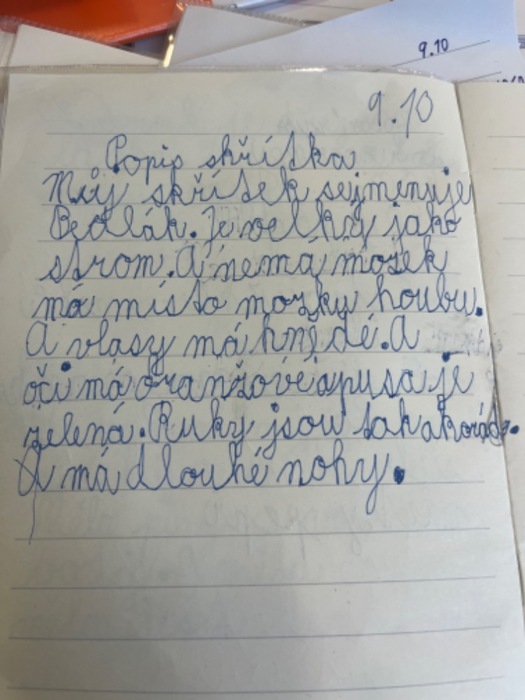 9.10
9.10
Popis skřítka
Můj skřítek sejmenuje
Bedlák. Je velký jako
strom. A nemá mozek
má místo mozku houbu.
A vlasy má hnědé. A
oči má oranžové a pusa je
zelená. Ruky jsou tak akorád.
A má dlouhé nohy.